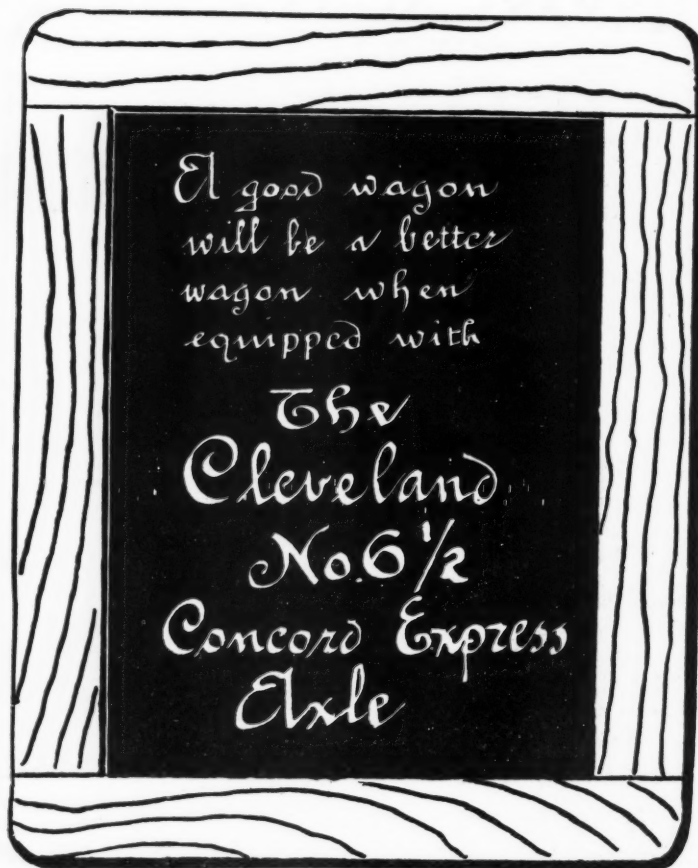 A good wagon
will be a better
wagon when
equipped with
The
Cleveland
No. 6 1/2
Concord Express
Axle